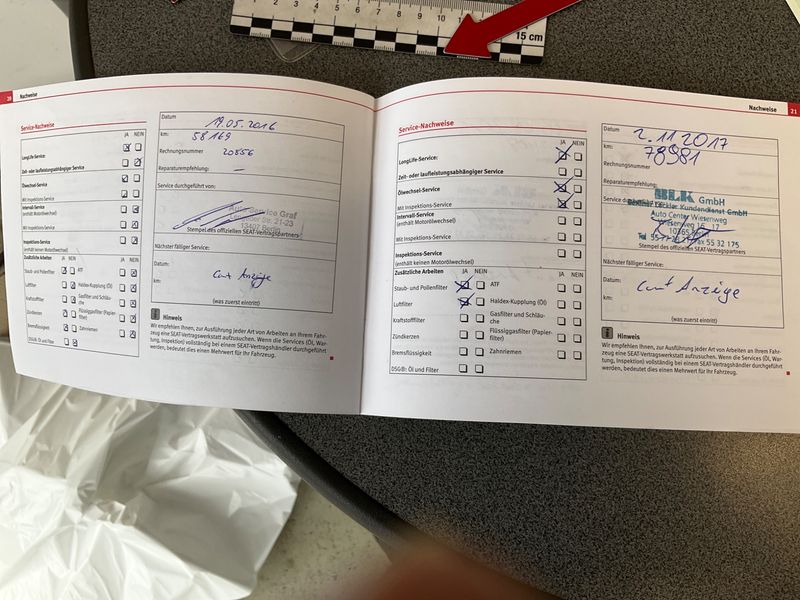 5 6 7 8 9 10
15 cm
20 Nachweise
Service-Nachweise
JA NEIN
LongLife-Service:
Zeit- oder laufleistungsabhängiger Service
Ölwechsel-Service:
Mit Inspektions-Service
Intervall-Service
(enthält Motorölwechsel)
Mit Inspektions-Service
Inspektions-Service
(enthält keinen Motorölwechsel)
Zusätzliche Arbeiten JA NEIN JA NEIN
Staub- und Pollenfilter ATF
Luftfilter Haldex-Kupplung (Öl)
Kraftstofffilter Gasfilter und Schläuche
Zündkerzen Flüssiggasfilter (Papierfilter)
Bremsflüssigkeit Zahnriemen
DSG®: Öl und Filter
Datum 19.05.2016
km: 58169
Rechnungsnummer 20856
Reparaturempfehlung: –
Service durchgeführt von:
Auto Service Graf
21-23
13407 Berlin
Stempel des offiziellen SEAT-Vertragspartners
Nächster fälliger Service:
Datum:
laut Anzeige
km:
(was zuerst eintritt)
Hinweis
Wir empfehlen Ihnen, zur Ausführung jeder Art von Arbeiten an Ihrem Fahr-
zeug eine SEAT-Vertragswerkstatt aufzusuchen. Wenn die Services (Öl, War-
tung, Inspektion) vollständig bei einem SEAT-Vertragshändler durchgeführt
werden, bedeutet dies einen Mehrwert für Ihr Fahrzeug.
Nachweise 21
Service-Nachweise
JA NEIN
LongLife-Service:
Zeit- oder laufleistungsabhängiger Service
Ölwechsel-Service:
Mit Inspektions-Service
Intervall-Service
(enthält Motorölwechsel)
Mit Inspektions-Service
Inspektions-Service
(enthält keinen Motorölwechsel)
Zusätzliche Arbeiten JA NEIN JA NEIN
Staub- und Pollenfilter ATF
Luftfilter Haldex-Kupplung (Öl)
Kraftstofffilter Gasfilter und Schläu-
che
Zündkerzen Flüssiggasfilter (Papier-
filter)
Bremsflüssigkeit Zahnriemen
DSG®: Öl und Filter
Datum 2.11.2017
km: 78981
Rechnungsnummer
Reparaturempfehlung:
BLK GmbH
Service Kundendienst GmbH
Auto Center Wiesenweg
Wiesenweg 15-17
10365
Tel Fax 55 32 175
Stempel des offiziellen SEAT-Vertragspartners
Nächster fälliger Service:
Datum:
laut Anzeige
km:
(was zuerst eintritt)
Hinweis
Wir empfehlen Ihnen, zur Ausführung jeder Art von Arbeiten an Ihrem Fahr-
zeug eine SEAT-Vertragswerkstatt aufzusuchen. Wenn die Services (Öl, War-
tung, Inspektion) vollständig bei einem SEAT-Vertragshändler durchgeführt
werden, bedeutet dies einen Mehrwert für Ihr Fahrzeug.